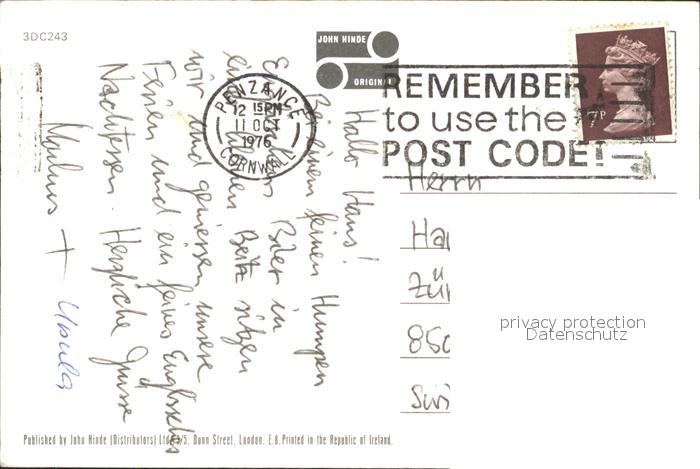 3DC243
JOHN HINDE
ORIGINAL
PENZANCE
12 15PM
11 OCT
1976
CORNWALL
REMEMBER
to use the
POST CODE!
7P
Hallo Hans!
Bei einem feinen Humpen
Bier in
Beitz sitzen
wir und geniessen unsere
Ferien und ein feines Englisches
Nachtessen. Herzliche Grüsse
Markus + Ursula
Herrn
Ha
Zür
850
Swi
privacy protection
Datenschutz
Published by John Hinde (Distributors) Ltd., 3/5, Dunn Street, London, E.8. Printed in the Republic of Ireland.